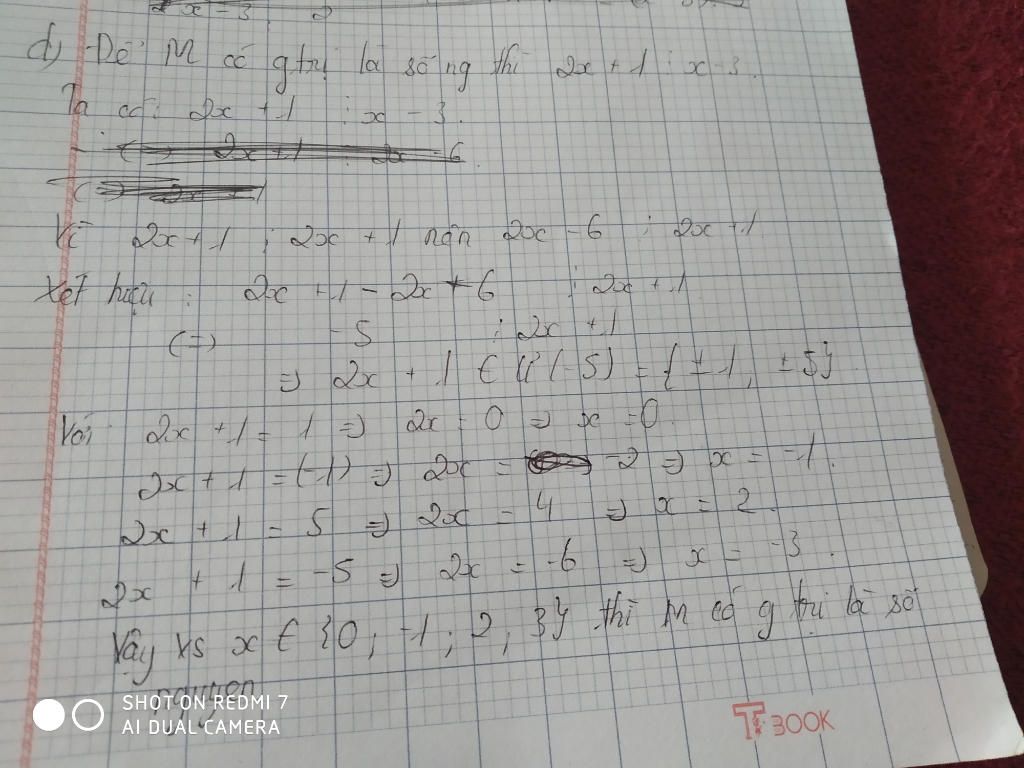 2x - 3 2
d) Để M có g trị là số ng thì 2x + 1 ⋮ x - 3.
Ta có: 2x + 1 ⋮ x - 3.
(=) 2x + 1 ⋮ 2x - 6
Vì 2x + 1 ⋮ 2x + 1 nên 2x - 6 ⋮ 2x + 1
Xét hiệu: 2x + 1 - 2x + 6 ⋮ 2x + 1
(=) -5 ⋮ 2x + 1
=> 2x + 1 € Ư(-5) = { ± 1, ± 5}
Với 2x + 1 = 1 => 2x = 0 => x = 0.
2x + 1 = (-1) => 2x = -2 => x = -1.
2x + 1 = 5 => 2x = 4 => x = 2.
2x + 1 = -5 => 2x = -6 => x = -3.
Vậy vs x € {0; -1; 2; 3} thì M có g trị là số
nguyên
SHOT ON REDMI 7
AI DUAL CAMERA
TBOOK